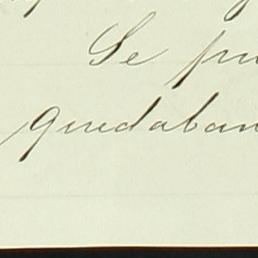 Se pu
quedaban